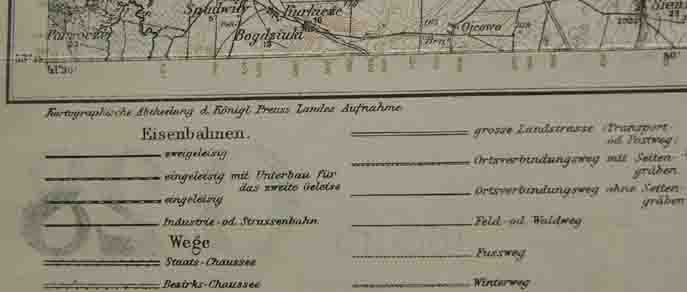 Spudwiły
Turkieńce
16
Bogdziuki
13
Ojcowo
Brn.
41°30'
50'
Kartographische Abtheilung d. Königl. Preuss. Landes Aufnahme.
Eisenbahnen.
zweigeleisig
eingeleisig mit Unterbau für
das zweite Geleise
eingeleisig
Industrie- od. Strassenbahn
Wege
Staats-Chaussee
Bezirks-Chaussee
grosse Landstrasse (Transport-
od. Postweg)
Ortsverbindungsweg mit Seiten-
gräben
Ortsverbindungsweg ohne Seiten-
gräben
Feld- od. Waldweg
Fussweg
Winterweg